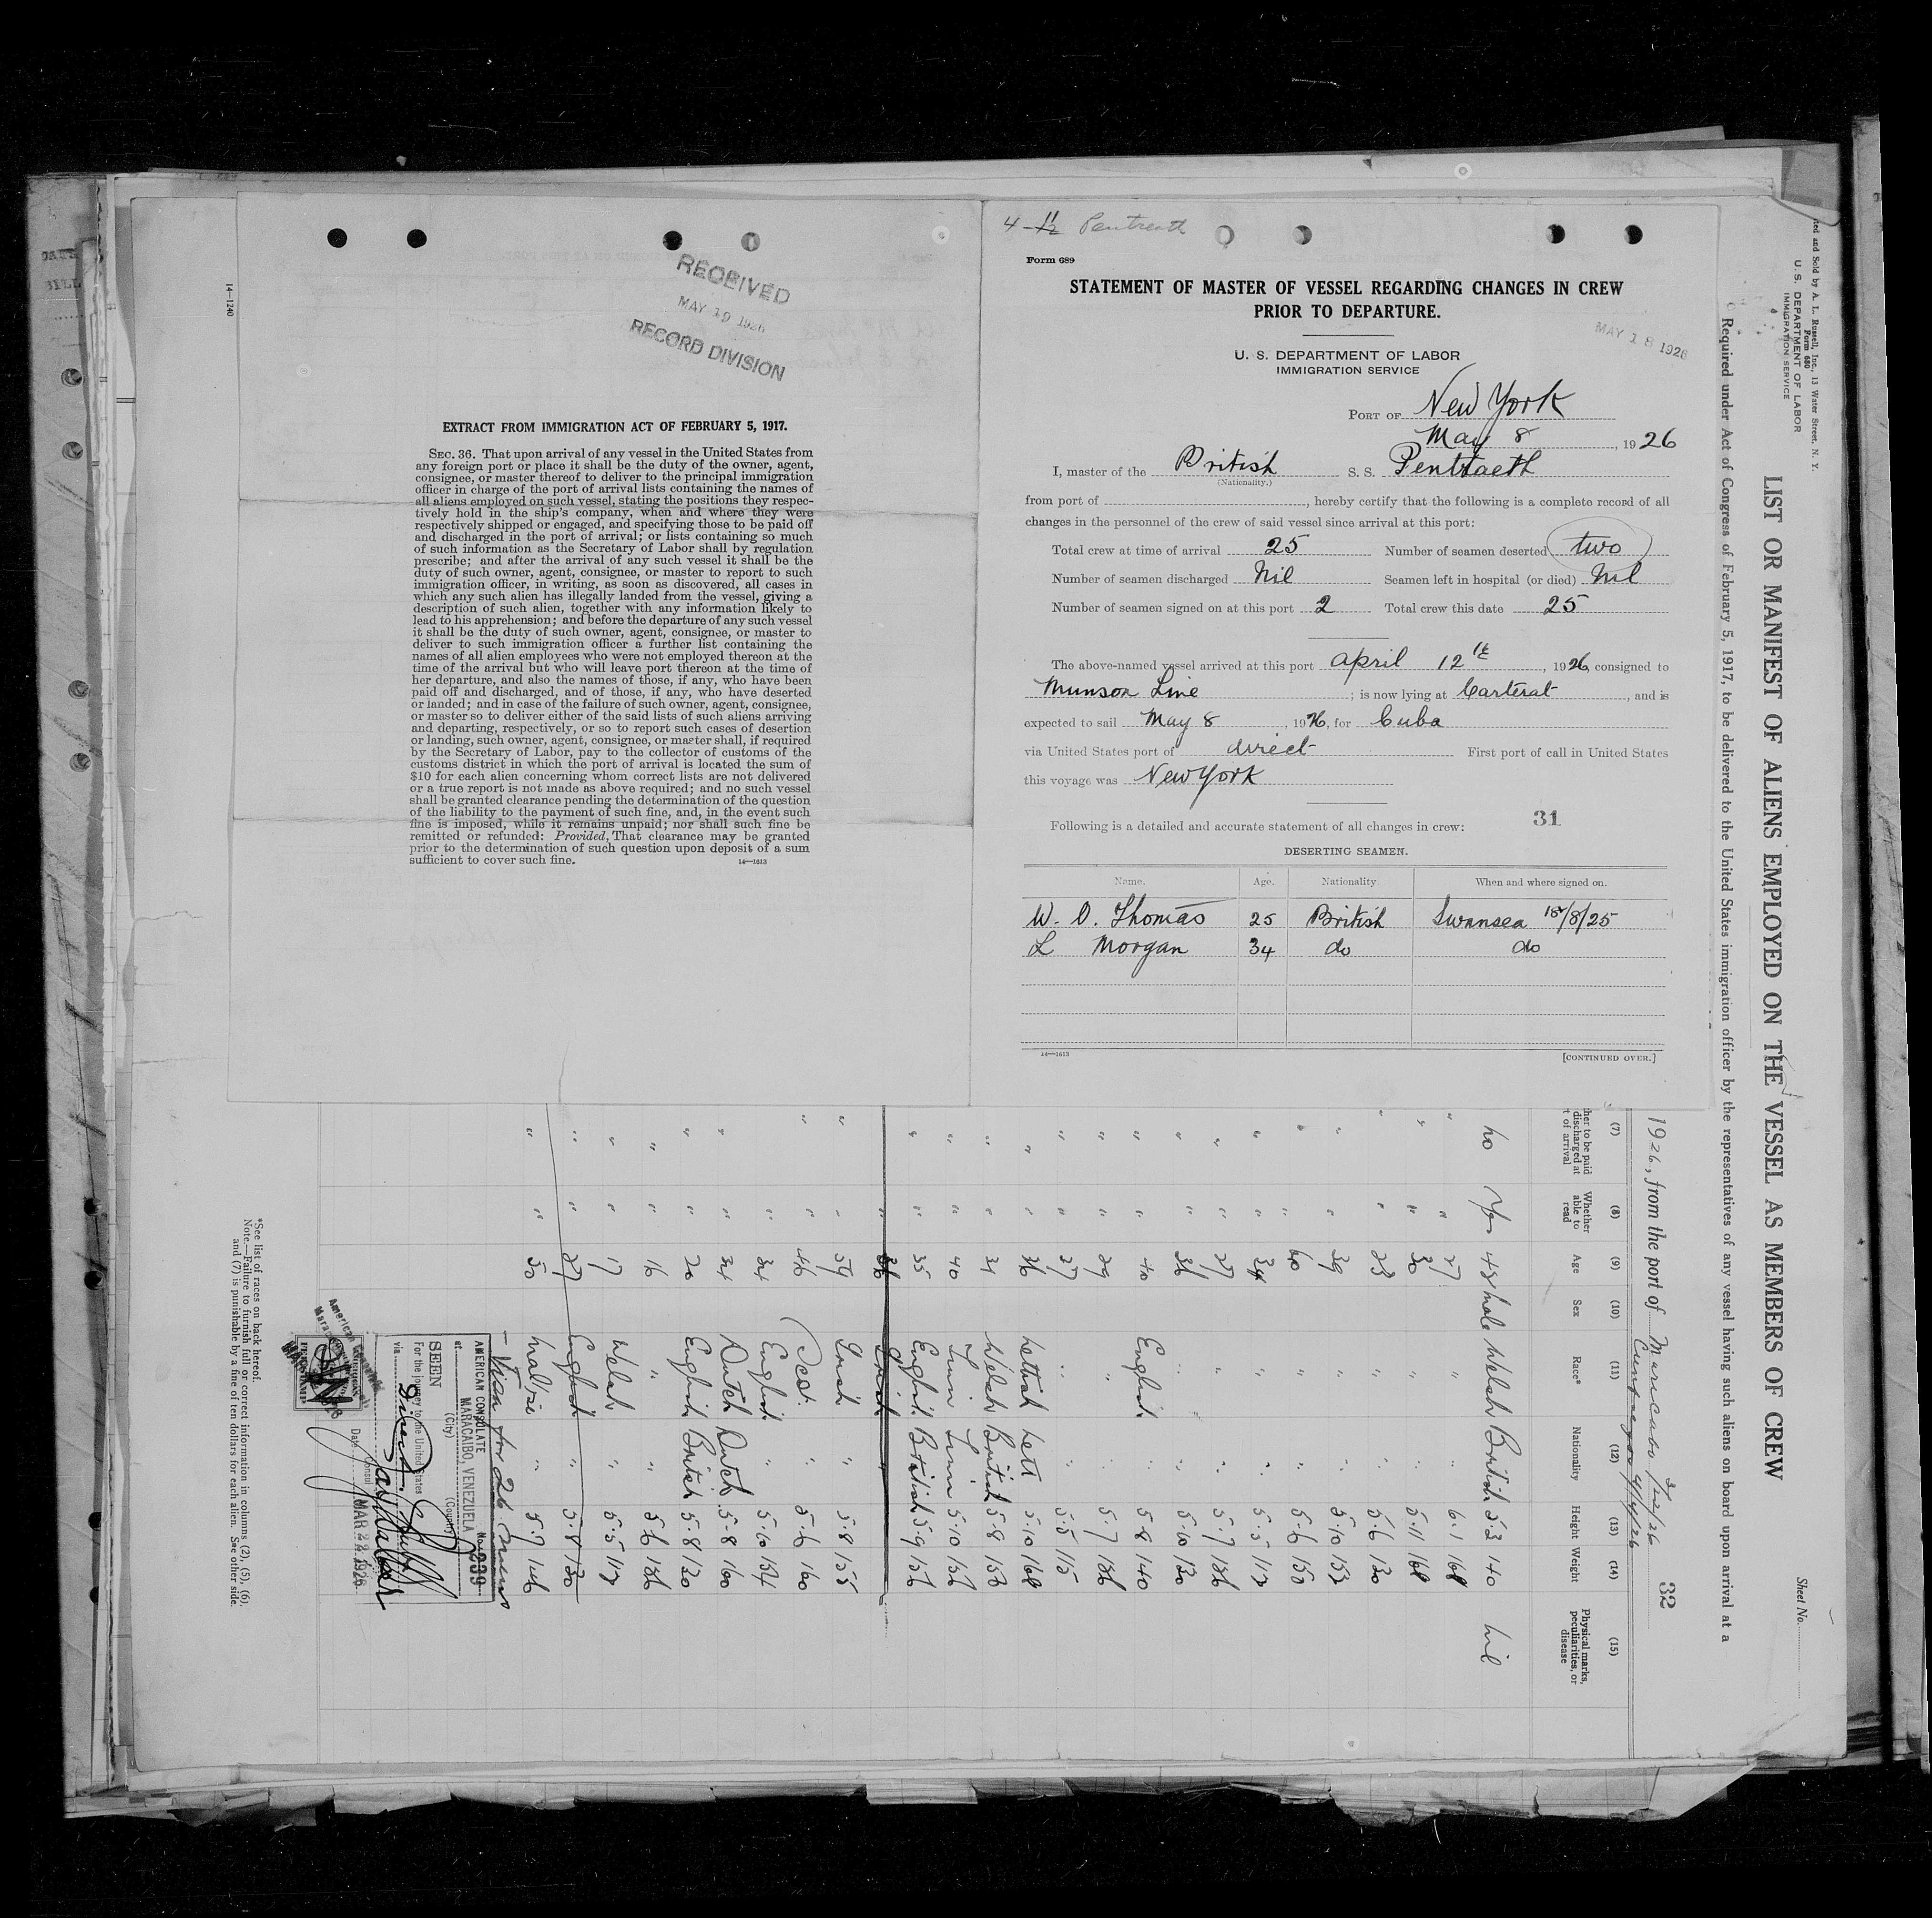 14-1240
RECEIVED
MAY 19 1926
RECORD DIVISION
EXTRACT FROM IMMIGRATION ACT OF FEBRUARY 5, 1917.
SEC. 36. That upon arrival of any vessel in the United States from
any foreign port or place it shall be the duty of the owner, agent,
consignee, or master thereof to deliver to the principal immigration
officer in charge of the port of arrival lists containing the names of
all aliens employed on such vessel, stating the positions they respec-
tively hold in the ship's company, when and where they were
respectively shipped or engaged, and specifying those to be paid off
and discharged in the port of arrival; or lists containing so much
of such information as the Secretary of Labor shall by regulation
prescribe; and after the arrival of any such vessel it shall be the
duty of such owner, agent, consignee, or master to report to such
immigration officer, in writing, as soon as discovered, all cases in
which any such alien has illegally landed from the vessel, giving a
description of such alien, together with any information likely to
lead to his apprehension; and before the departure of any such vessel
it shall be the duty of such owner, agent, consignee, or master to
deliver to such immigration officer a further list containing the
names of all alien employees who were not employed thereon at the
time of the arrival but who will leave port thereon at the time of
her departure, and also the names of those, if any, who have been
paid off and discharged, and of those, if any, who have deserted
or landed; and in case of the failure of such owner, agent, consignee,
or master so to deliver either of the said lists of such aliens arriving
and departing, respectively, or so to report such cases of desertion
or landing, such owner, agent, consignee, or master shall, if required
by the Secretary of Labor, pay to the collector of customs of the
customs district in which the port of arrival is located the sum of
$10 for each alien concerning whom correct lists are not delivered
or a true report is not made as above required; and no such vessel
shall be granted clearance pending the determination of the question
of the liability to the payment of such fine, and, in the event such
fine is imposed, while it remains unpaid; nor shall such fine be
remitted or refunded: Provided, That clearance may be granted
prior to the determination of such question upon deposit of a sum
sufficient to cover such fine.
14—1613
Form 689
STATEMENT OF MASTER OF VESSEL REGARDING CHANGES IN CREW
PRIOR TO DEPARTURE.
MAY 18 1926
U. S. DEPARTMENT OF LABOR
IMMIGRATION SERVICE
PORT OF New York
May 8, 1926
I, master of the British S. S. Pentraeth
(Nationality.)
from port of , hereby certify that the following is a complete record of all
changes in the personnel of the crew of said vessel since arrival at this port:
Total crew at time of arrival 25 Number of seamen deserted two
Number of seamen discharged Nil Seamen left in hospital (or died) Nil
Number of seamen signed on at this port 2 Total crew this date 25
The above-named vessel arrived at this port April 12th, 1926, consigned to
Munson Line ; is now lying at Carterat, and is
expected to sail May 8, 1926, for Cuba
via United States port of direct First port of call in United States
this voyage was New York
31
Following is a detailed and accurate statement of all changes in crew:
DESERTING SEAMEN.
Name. Age. Nationality. When and where signed on.
W. O. Thomas 25 British Swansea 18/8/25
L Morgan 34 do do
14—1613
[CONTINUED OVER.]
ted and Sold by A. L. Russell, Inc., 13 Water Street, N. Y.
Form 680
U. S. DEPARTMENT OF LABOR
IMMIGRATION SERVICE
Sheet No.
LIST OR MANIFEST OF ALIENS EMPLOYED ON THE VESSEL AS MEMBERS OF CREW
Required under Act of Congress of February 5, 1917, to be delivered to the United States immigration officer by the representatives of any vessel having such aliens on board upon arrival at a
32
1926, from the port of Maracaibo
(7) (8) (9) (10) (11) (12) (13) (14) (15)
her to be paid discharged at of arrival Whether able to read Age Sex Race* Nationality Height Weight Physical marks, peculiarities, or disease
no Yes 48 Male Welsh British 5.3 140 nil
" " 27 " " 6.1 168
" " 30 " " 5.11 168
" " 23 " " 5.6 130
" " 39 " " 5.10 153
" " 40 " " 5.6 150
" " 34 " " 5.5 113
" " 27 " " 5.7 136
" " 36 " " 5.10 130
" " 40 English " 5.8 140
" " 29 " " 5.7 136
" " 27 " " 5.5 115
" " 36 Lettish Lett 5.10 168
" " 31 Welsh British 5.8 156
" " 40 5.10 156
" " 35 English British 5.9 156
" 36
" " 54 " 5.8 155
" " 46 Scot. " 5.6 160
" 34 English " 5.10 154
" " 34 Dutch Dutch 5.8 160
" " 20 English British 5.8 130
" " 16 " " 5.6 136
" " 17 Welsh " 5.5 113
" " 27 English " 5.8 130
" " 50 Maltese " 5.7 146
Visa for 26 men
AMERICAN CONSULATE No. 239
at MARACAIBO, VENEZUELA
(City) (Country)
SEEN
For the journey to the United States
via Direct
Consul
Date MAR 22 1926
*See list of races on back hereof.
Note.—Failure to furnish full or correct information in columns (2), (5), (6),
and (7) is punishable by a fine of ten dollars for each alien. See other side.